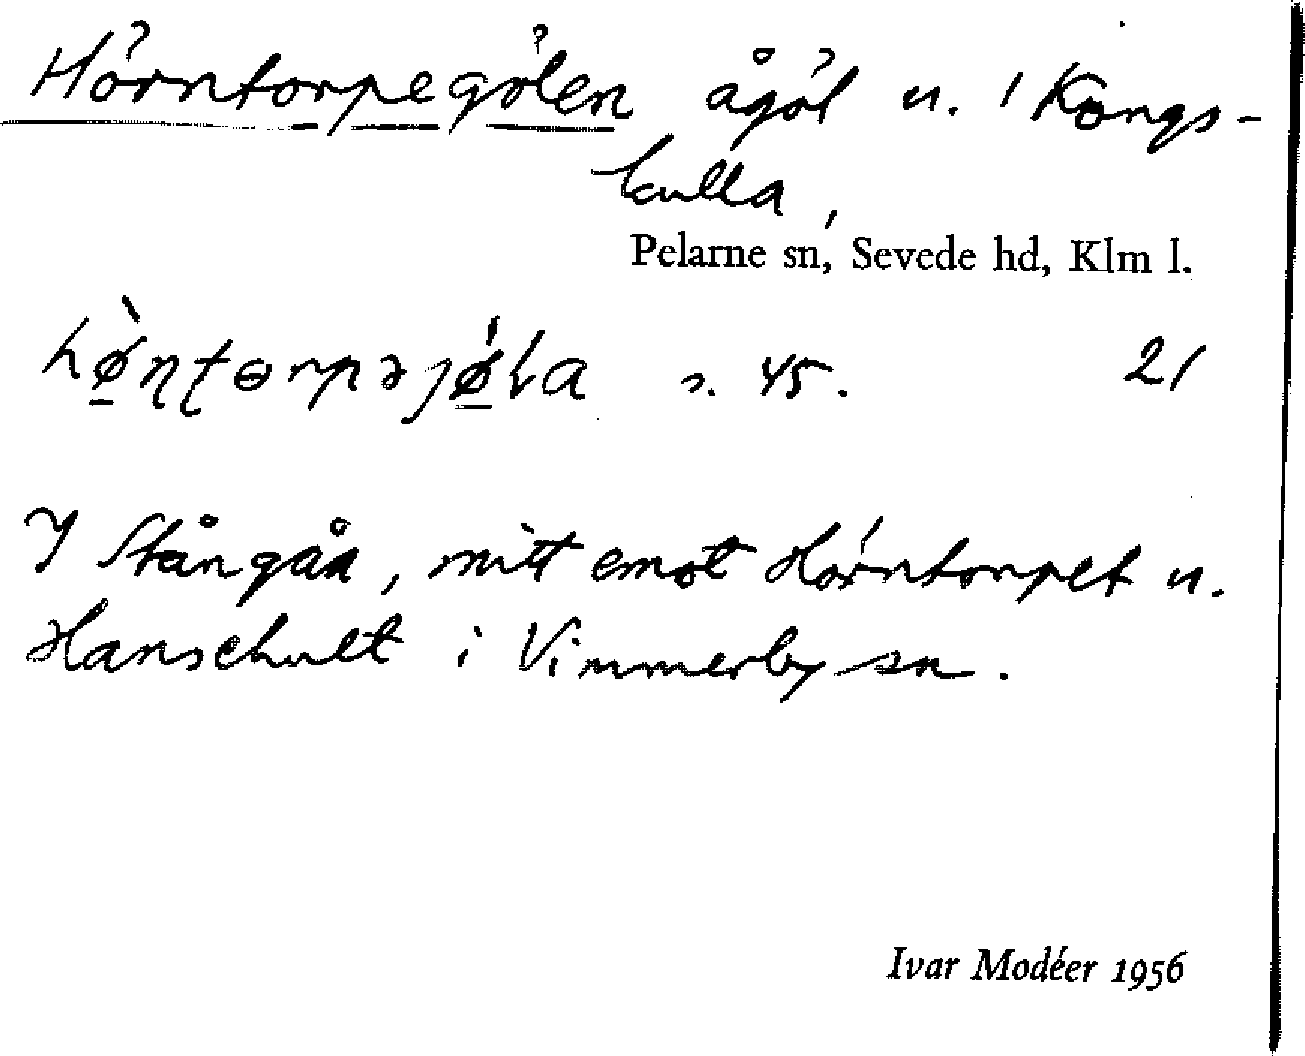 Hörntorpegölen ågöl u. 1 Kongs-
kulla,
Pelarne sn, Sevede hd, Klm l.
hø̀ɳʈɵrpəjǿɫa s. 45. 21
I Stångån, mitt emot Hörntorpet u.
Hanschult i Vimmerby sn.
Ivar Modéer 1956